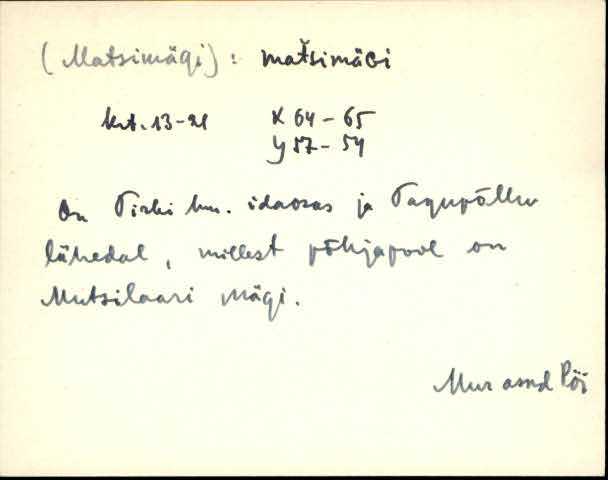 (Matsimägi): mat̆simäGi
krt. 13-21 X 64-65
y 57-54
On Tirbi hm. idaosas ja Tagupõllu
lähedal, millest põhjapool on
Mutsilaari mägi.
Mur asnd Pöi